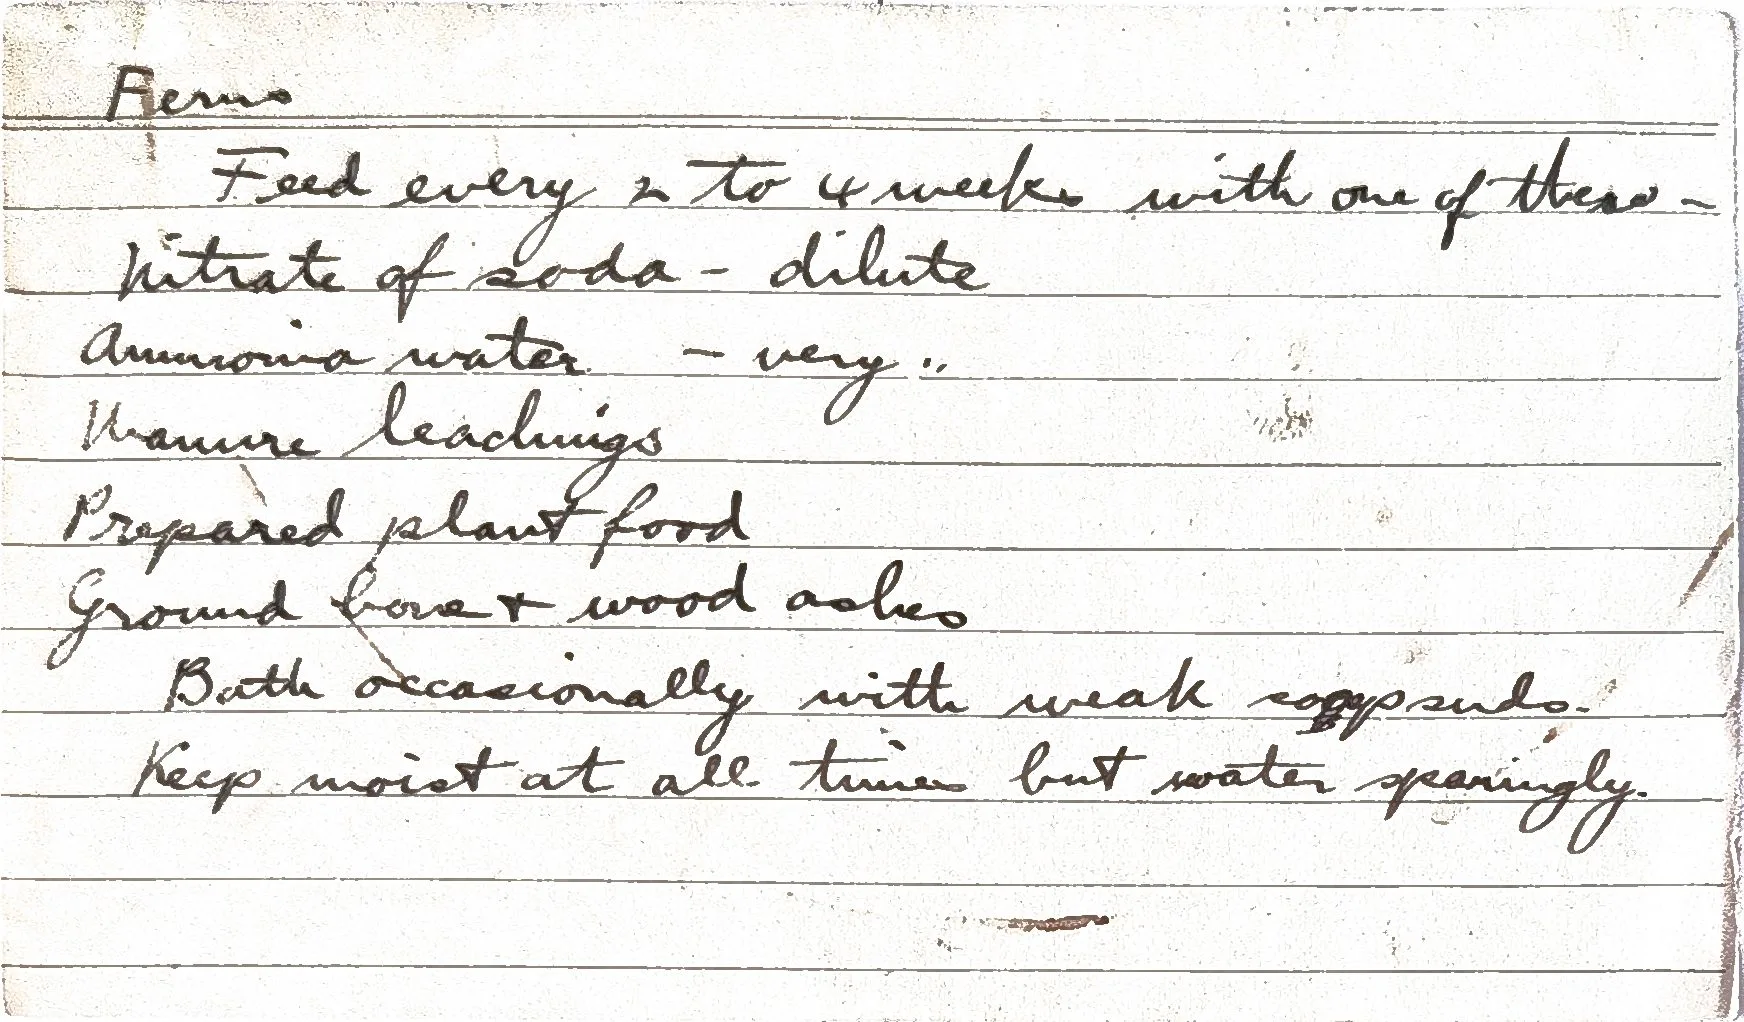 Ferns
Feed every 2 to 4 weeks with one of these -
Nitrate of soda - dilute
Ammonia water - very "
Manure leachings
Prepared plant food
Ground bone + wood ashes
Bath occasionally with weak soapsuds.
Keep moist at all times but water sparingly.